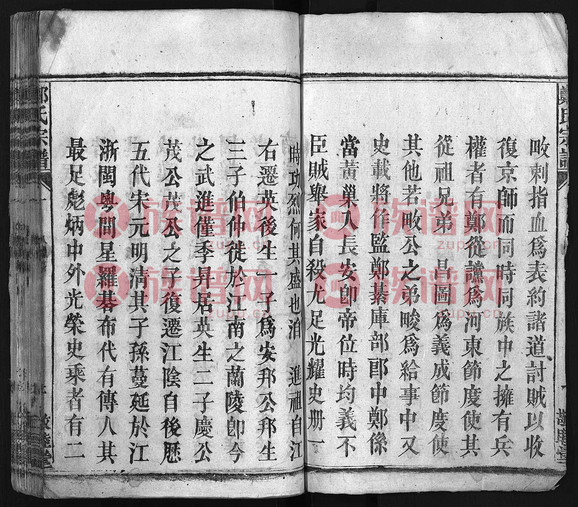 畋刺指血爲表約諸道討賊以收
復京師而同時同族中之擁有兵
權者有鄭從讜爲河東節度使其
從祖兄弟昌圖爲義成節度使
其他若畋公之弟畯爲給事中又
史載將作監鄭綦庫部郎中鄭係
當黃巢入長安卽帝位時均義不
臣賊舉家自殺尤足光耀史册一
時功烈何其盛也 進祖自江
右遷英後生一子爲安邦公邦生
三子伯仲從於江南之蘭陵卽今
之武進僅季昇居英生二子慶公
茂公茂公之子復遷江陰自後歷
五代宋元明清其子孫蔓延於江
浙閩粤間星羅棊布代有傳人其
最足彪炳中外光榮史乘者有二
鄭氏宗譜
鄭氏宗譜
族谱网
zupu.cn